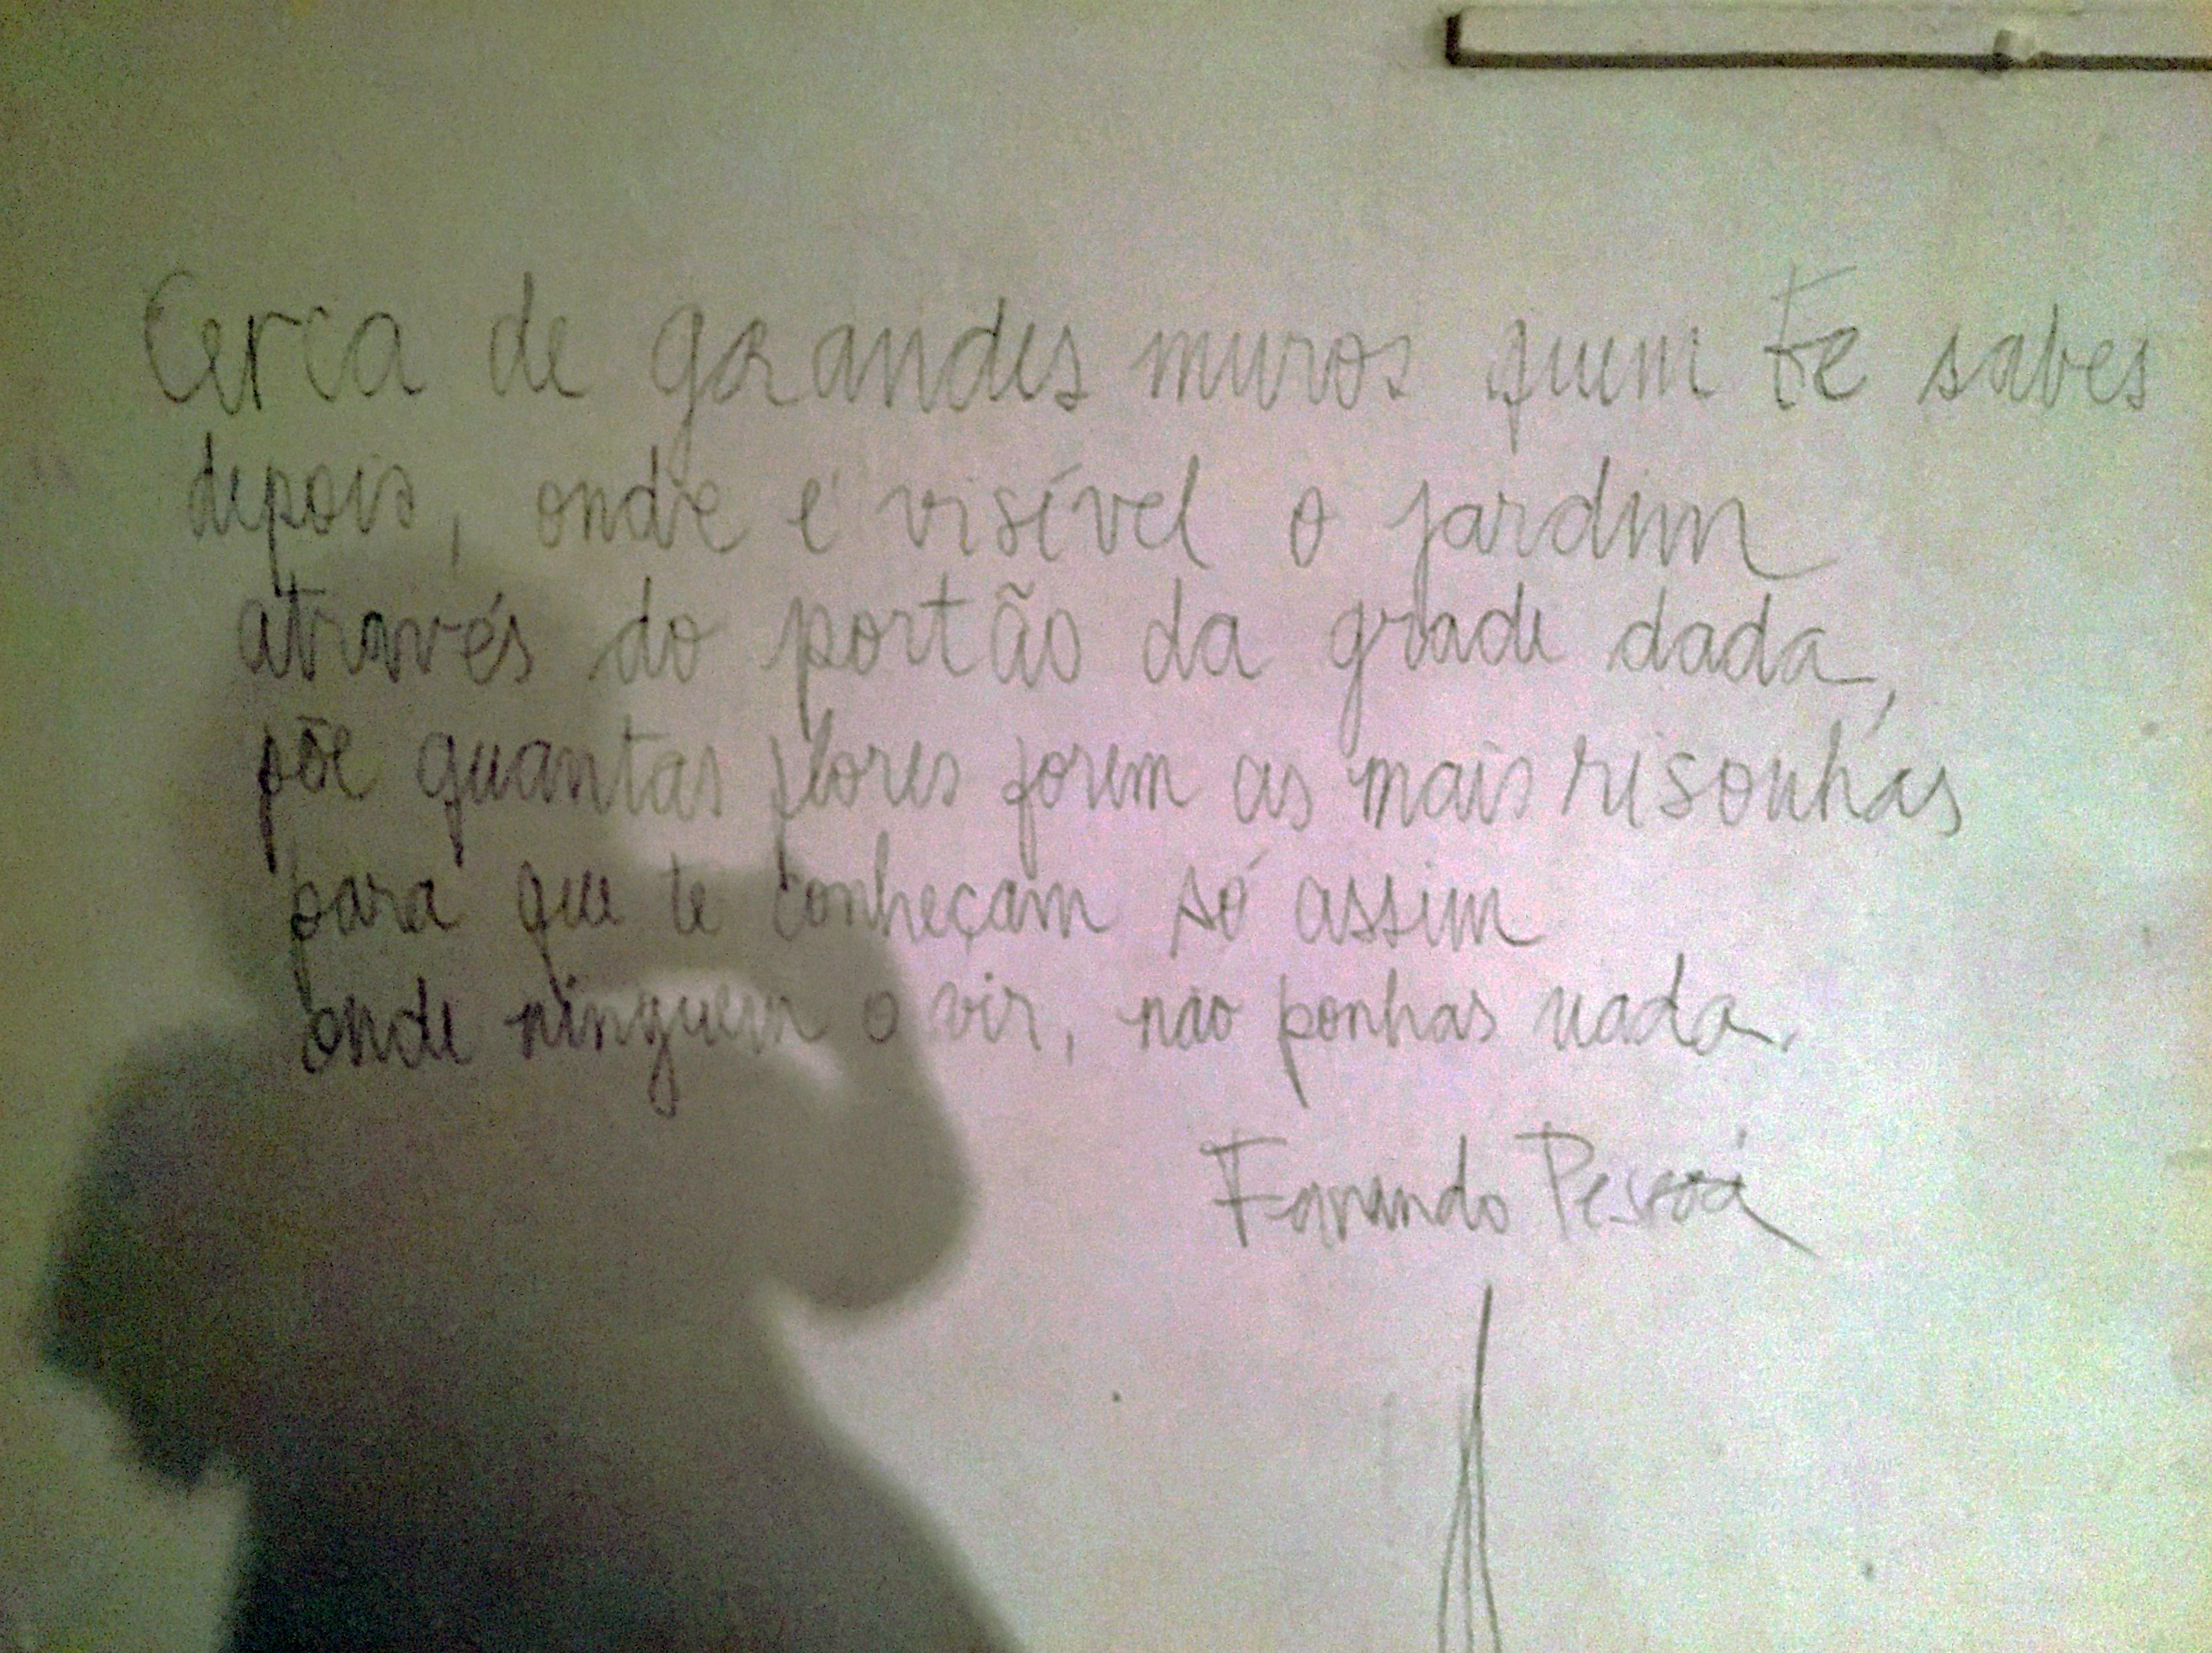 Cerca de grandes muros quem te sabes
depois, onde é visível o jardim
através do portão da grade dada,
põe quantas flores forem as mais risonhas
para que te conheçam só assim
onde ninguem o vir, não ponhas nada.
Fernando Pessoa